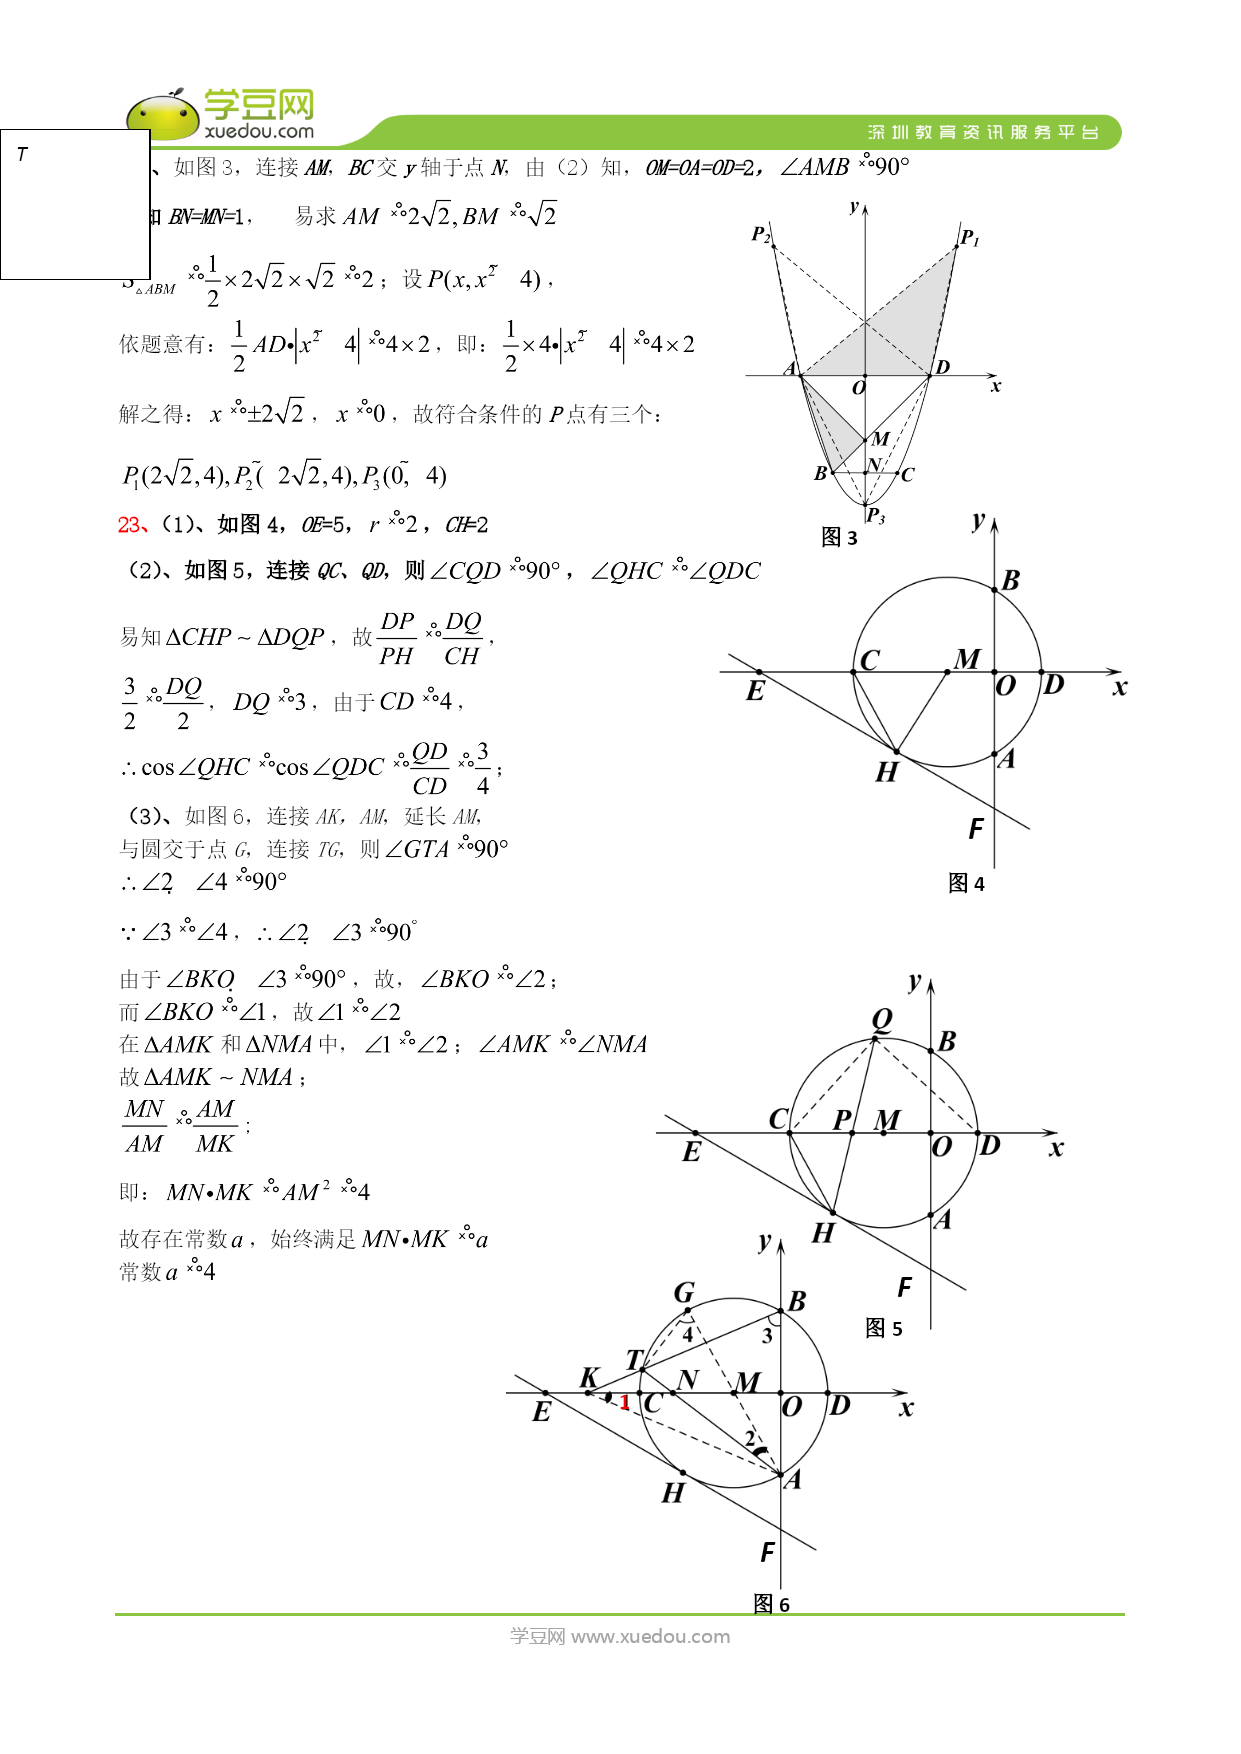 学豆网
xuedou.com
深圳教育资讯服务平台
T
、如图3，连接 AM，BC 交 y 轴于点 N，由（2）知，OM=OA=OD=2，∠AMB °90°
知 BN=MN=1， 易求 AM °2√2, BM °√2
S△ABM °1/2×2√2×√2 °2；设 P(x, x² 4)，
依题意有：1/2 AD•|x² 4| °4×2，即：1/2×4•|x² 4| °4×2
解之得：x °±2√2，x °0，故符合条件的 P 点有三个：
P₁(2√2,4), P₂( 2√2,4), P₃(0, 4)
23、（1）、如图 4，OE=5，r °2，CH=2
（2）、如图 5，连接 QC、QD，则∠CQD °90°，∠QHC °∠QDC
易知 ΔCHP ~ ΔDQP，故 DP/PH ° DQ/CH，
3/2 ° DQ/2，DQ °3，由于 CD °4，
∴cos∠QHC °cos∠QDC ° QD/CD ° 3/4；
（3）、如图 6，连接 AK，AM，延长 AM，
与圆交于点 G，连接 TG，则∠GTA °90°
∴∠2 ∠4 °90°
∵∠3 °∠4，∴∠2 ∠3 °90°
由于∠BKO ∠3 °90°，故，∠BKO °∠2；
而∠BKO °∠1，故∠1 °∠2
在 ΔAMK 和 ΔNMA 中，∠1 °∠2；∠AMK °∠NMA
故 ΔAMK ~ NMA；
MN/AM ° AM/MK；
即：MN•MK °AM² °4
故存在常数 a，始终满足 MN•MK °a
常数 a °4
y
P₂
P₁
A
D
O
x
M
B
N
C
P₃
图 3
y
B
C
M
E
O
D
x
H
A
F
图 4
y
Q
B
C
P
M
E
O
D
x
H
A
F
图 5
y
G
B
4
3
T
K
N
M
E
1
C
O
D
x
2
H
A
F
图 6
学豆网 www.xuedou.com